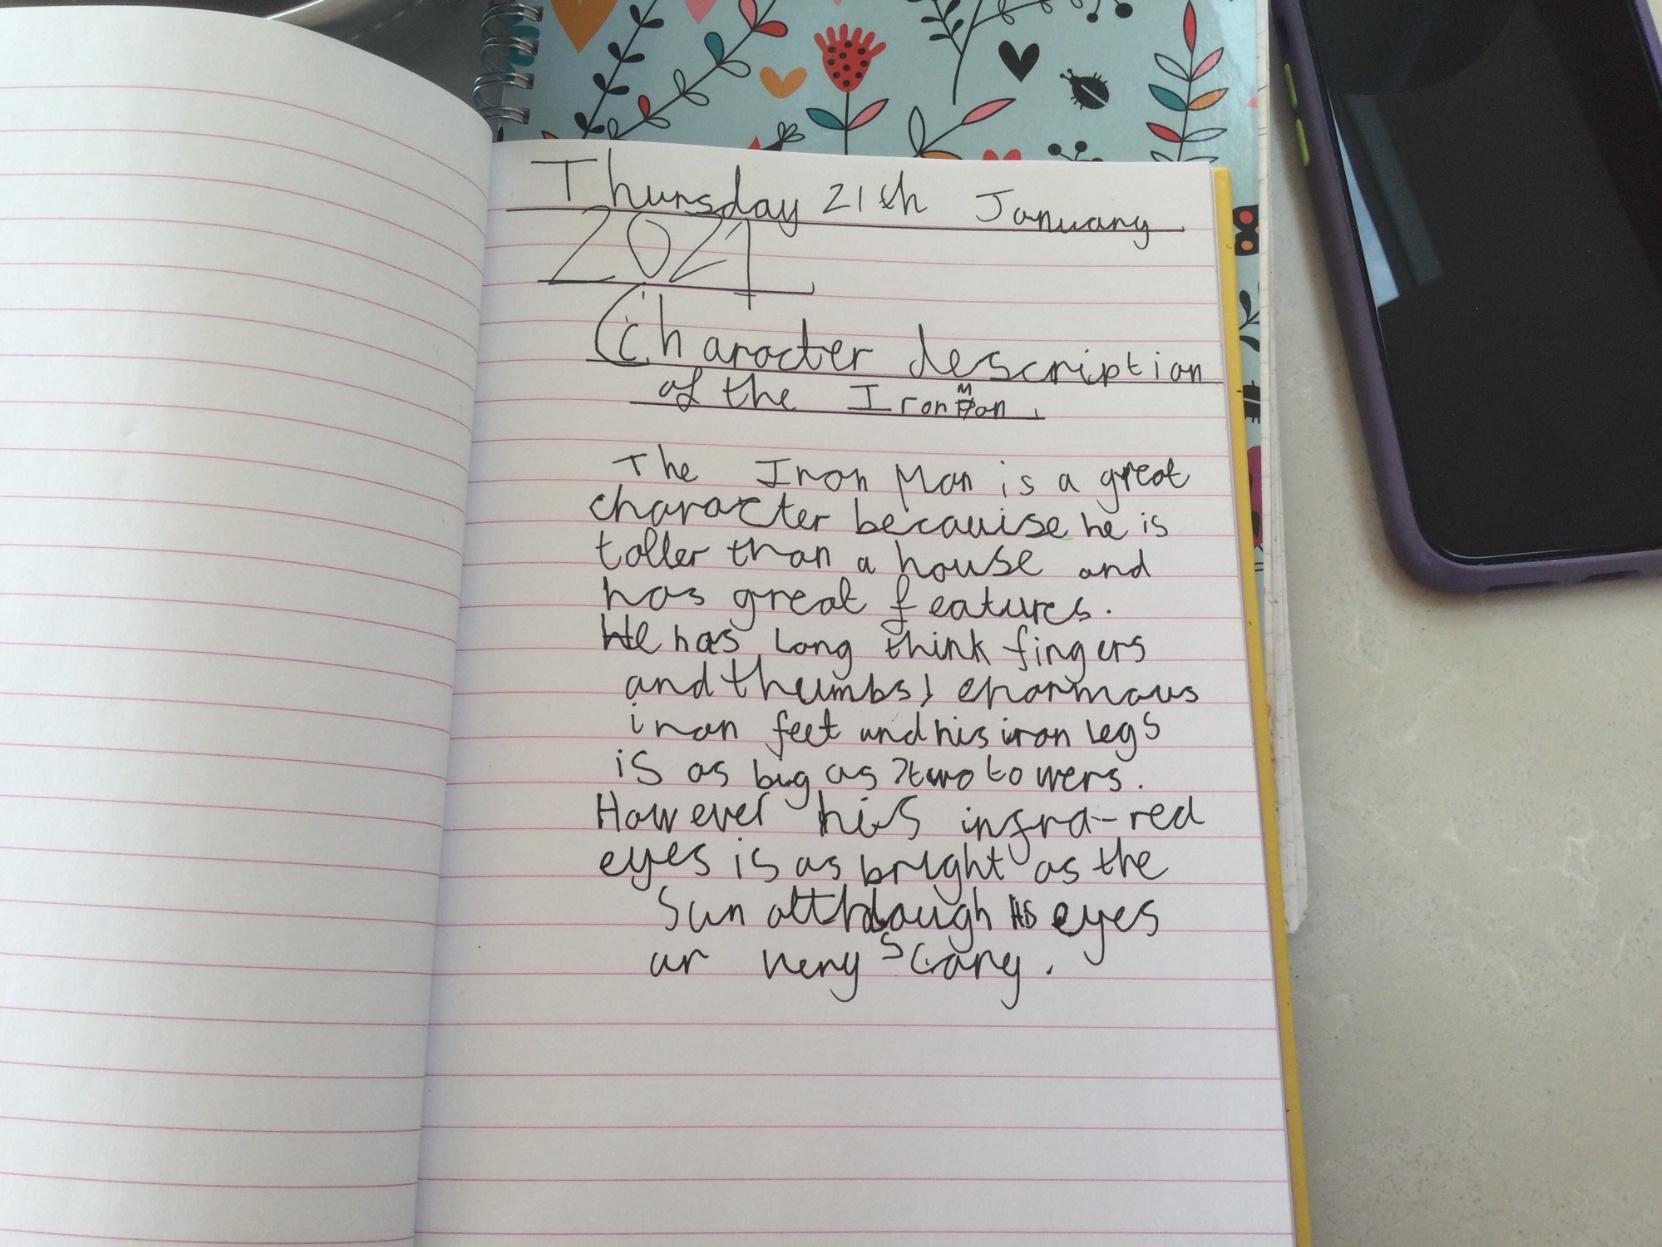 Thursday 21th January
2021
Character description
of the Iron Man.
The Iron Man is a great
character becauise he is
taller than a house and
has great features.
He has long think fingers
and thumbs, enormous
iron feet and his iron legs
is as big as two towers.
However his infra-red
eyes is as bright as the
Sun although his eyes
ar very scary.